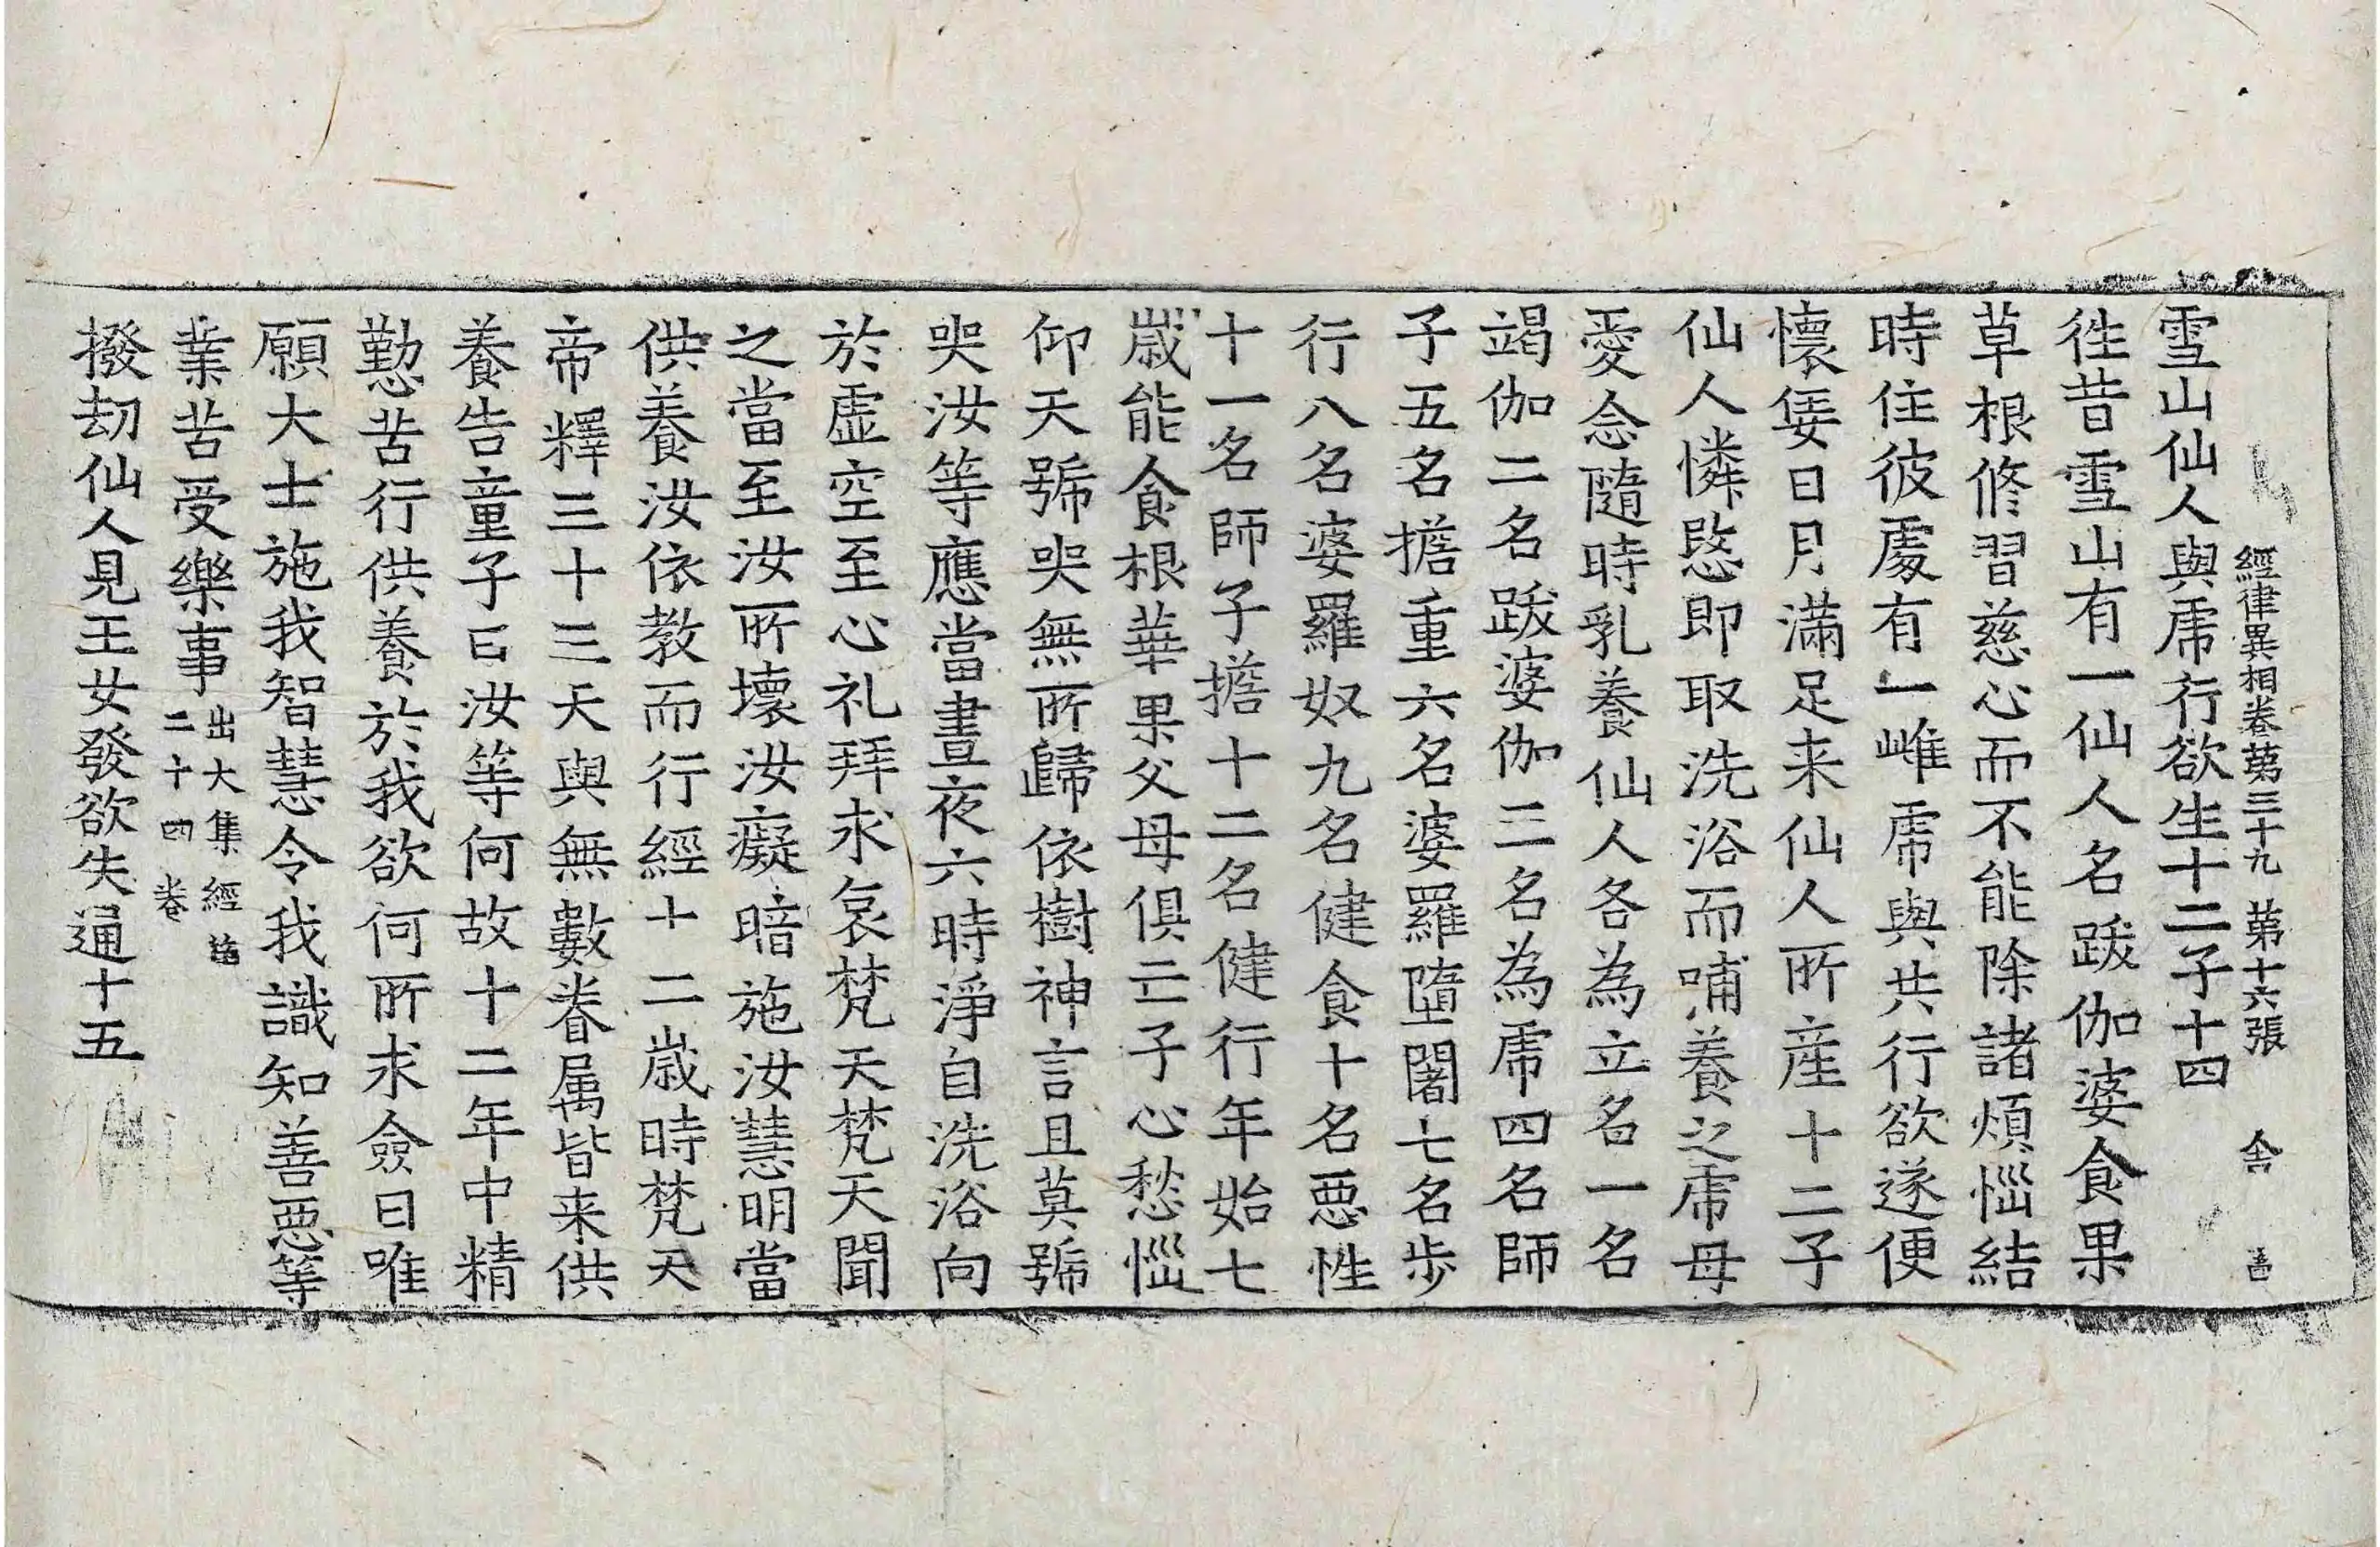 經律異相卷第三十九 第十六張 舍
雪山仙人與虎行欲生十二子十四
徃昔雪山有一仙人名跋伽婆食果
草根修習慈心而不能除諸煩惱結
時住彼處有一雌虎與共行欲遂便
懷妊日月滿足来仙人所産十二子
仙人憐愍即取洗浴而哺養之虎母
愛念隨時乳養仙人各為立名一名
竭伽二名跋婆伽三名為虎四名師
子五名擔重六名婆羅墮闍七名步
行八名婆羅奴九名健食十名惡性
十一名師子擔十二名健行年始七
歲能食根華果父母俱亡子心愁惱
仰天號哭無所歸依樹神言且莫號
哭汝等應當晝夜六時淨自洗浴向
於虛空至心礼拜求哀梵天梵天聞
之當至汝所壞汝癡暗施汝慧明當
供養汝依教而行經十二歲時梵天
帝釋三十三天與無數眷属皆来供
養告童子曰汝等何故十二年中精
勤苦行供養於我欲何所求僉曰唯
願大士施我智慧令我識知善惡等
業苦受樂事出大集經
二十四卷
撥劫仙人見王女發欲失通十五